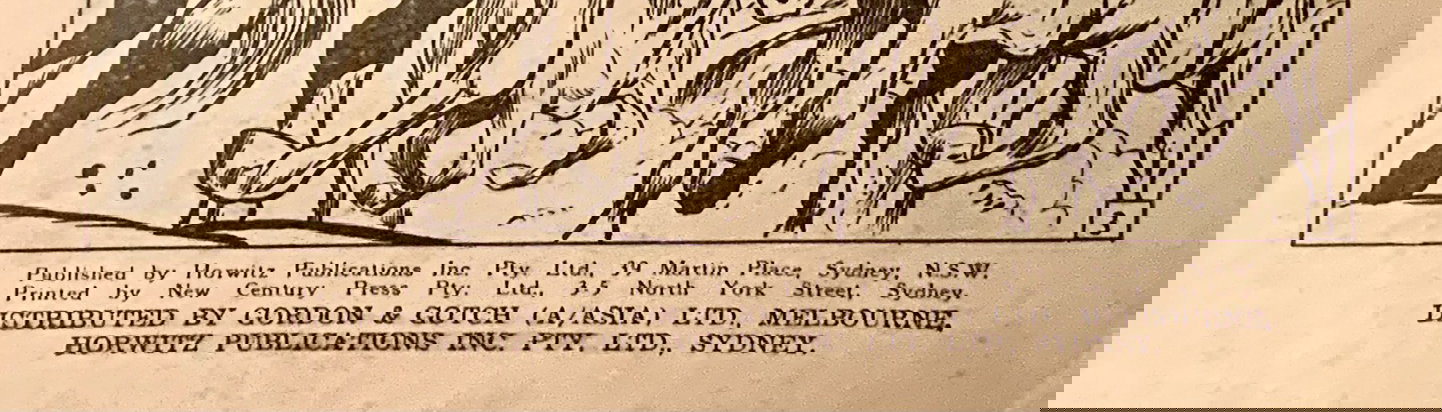 5
Published by Horwitz Publications Inc. Pty. Ltd., 39 Martin Place, Sydney, N.S.W.
Printed by New Century Press Pty. Ltd., 3-5 North York Street, Sydney.
DISTRIBUTED BY GORDON & GOTCH (A/ASIA) LTD., MELBOURNE,
HORWITZ PUBLICATIONS INC. PTY. LTD., SYDNEY.